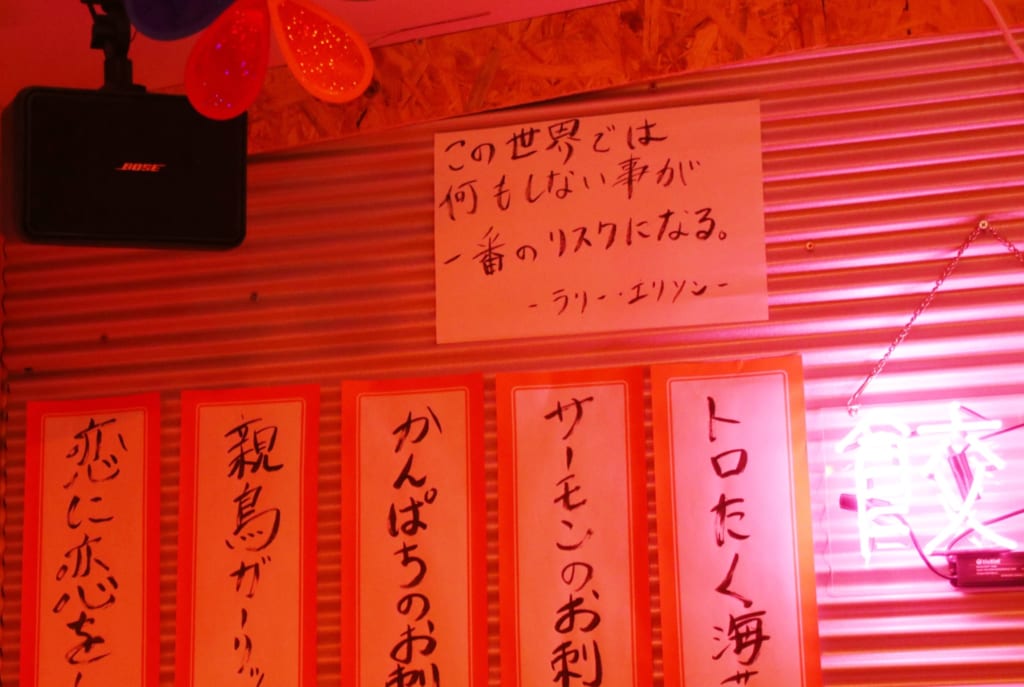 BOSE
この世界では
何もしない事が
一番のリスクになる。
- ラリー・エリソン -
トロたく海
サーモンのお刺
かんぱちのお刺
親鳥ガーリッ
恋に恋を
餃